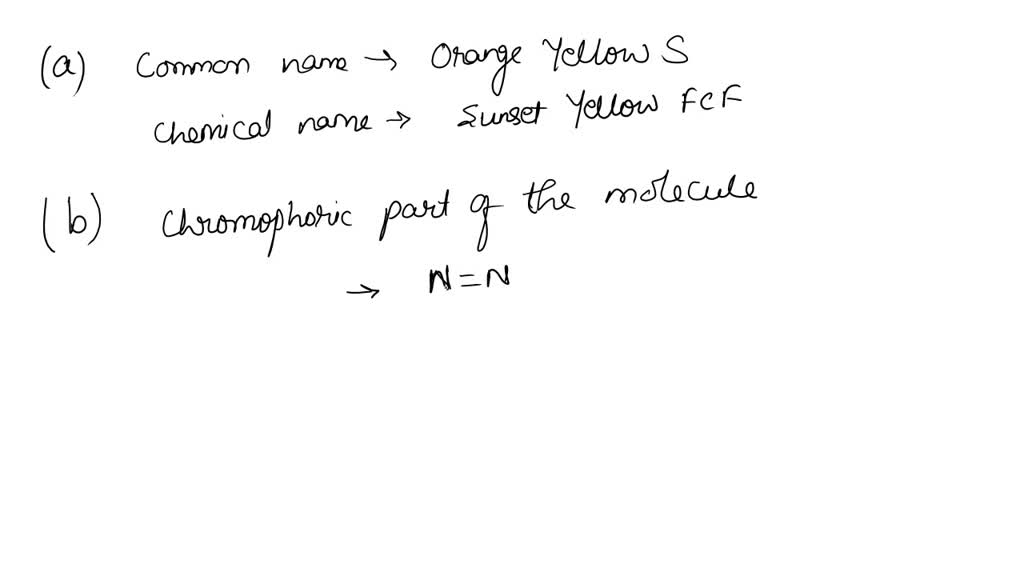 (a) Common name → Orange Yellow S
Chemical name → Sunset Yellow FCF
(b) Chromophoric part of the molecule
→ N=N